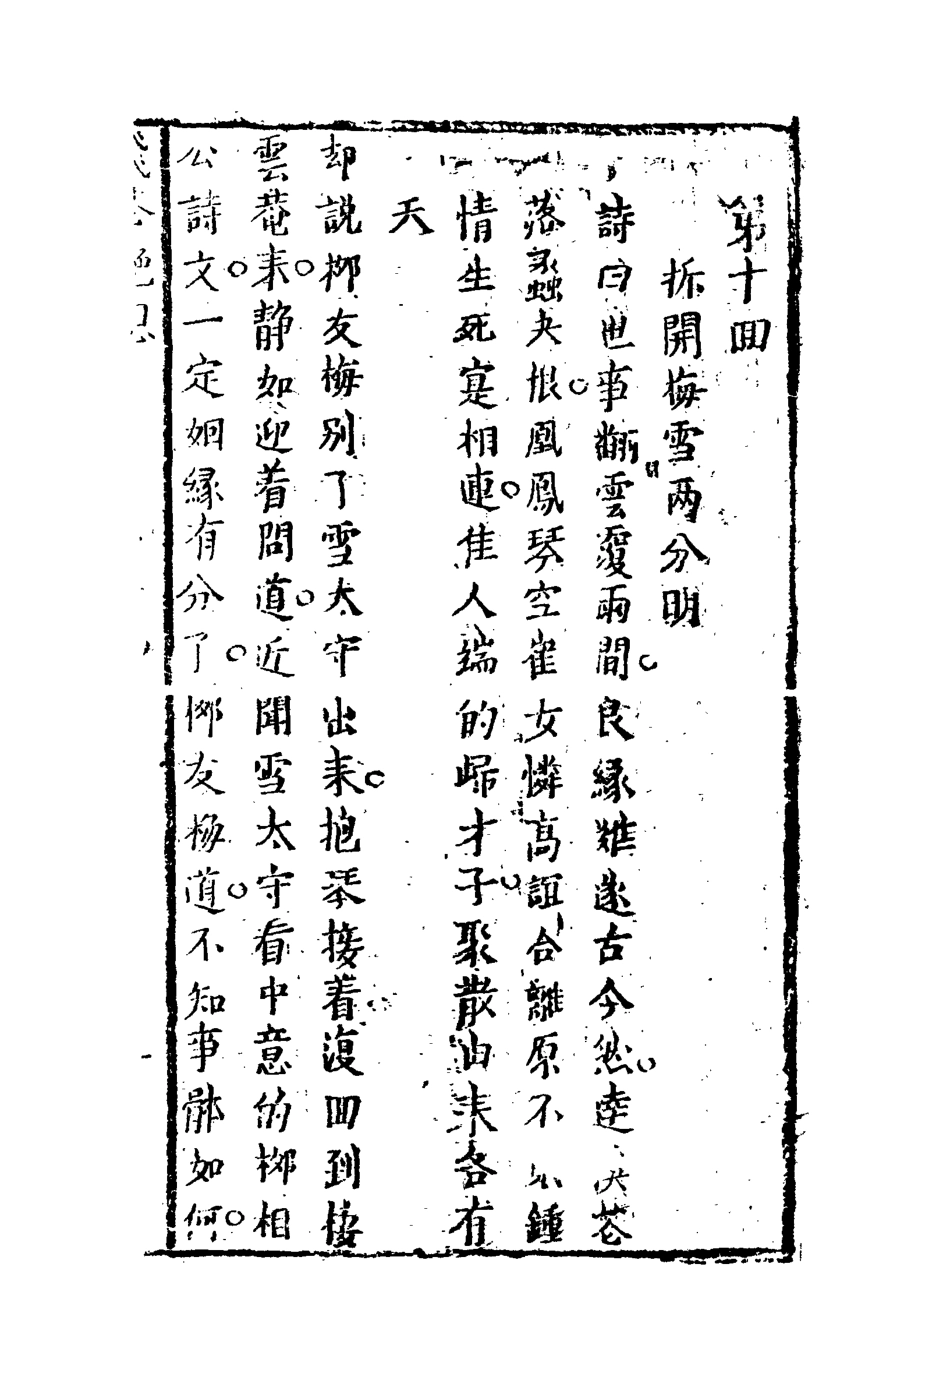 第十回
拆開梅雪兩分明
詩曰世事翻雲覆雨間○良緣難遂古今然○逵花
落蝨夫恨○凰鳳琴空雀女憐高誼合離原不鍾
情生死寔相連○佳人端的歸才子○聚散由来各有
天
却說栁友梅別了雪太守出来○抱琴接着復回到棲
雲菴来○静如迎着問道○近聞雪太守看中意的栁相
公詩文○一定姻緣有分了○栁友梅道○不知事體如何○